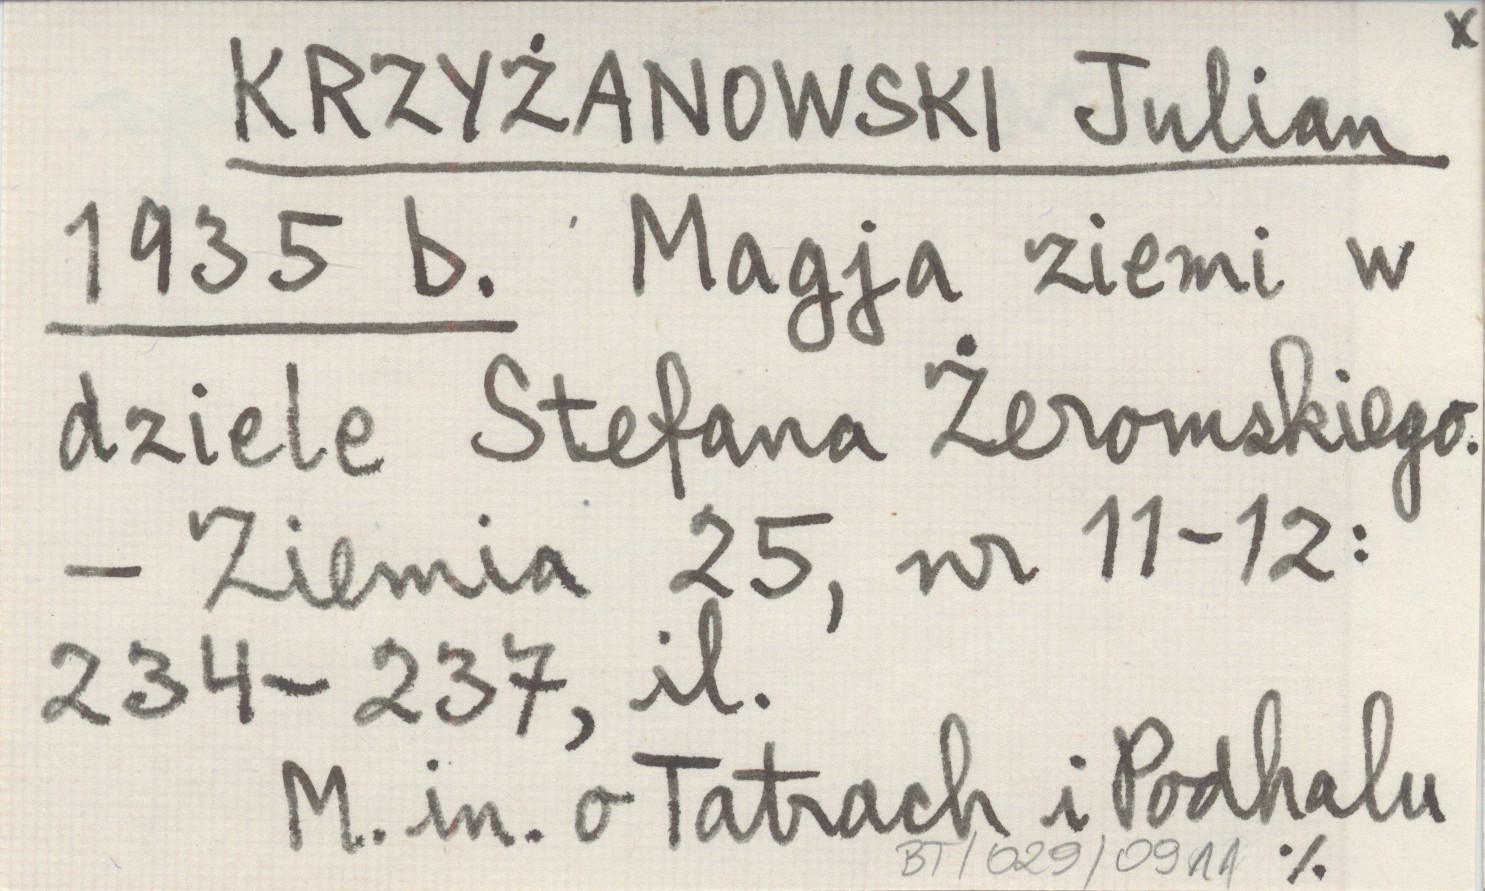 x
KRZYŻANOWSKI Julian
1935 b. Magja ziemi w
dziele Stefana Żeromskiego.
– Ziemia 25, nr 11-12:
234-237, il.
M. in. o Tatrach i Podhalu
BT/029/0911 ./.